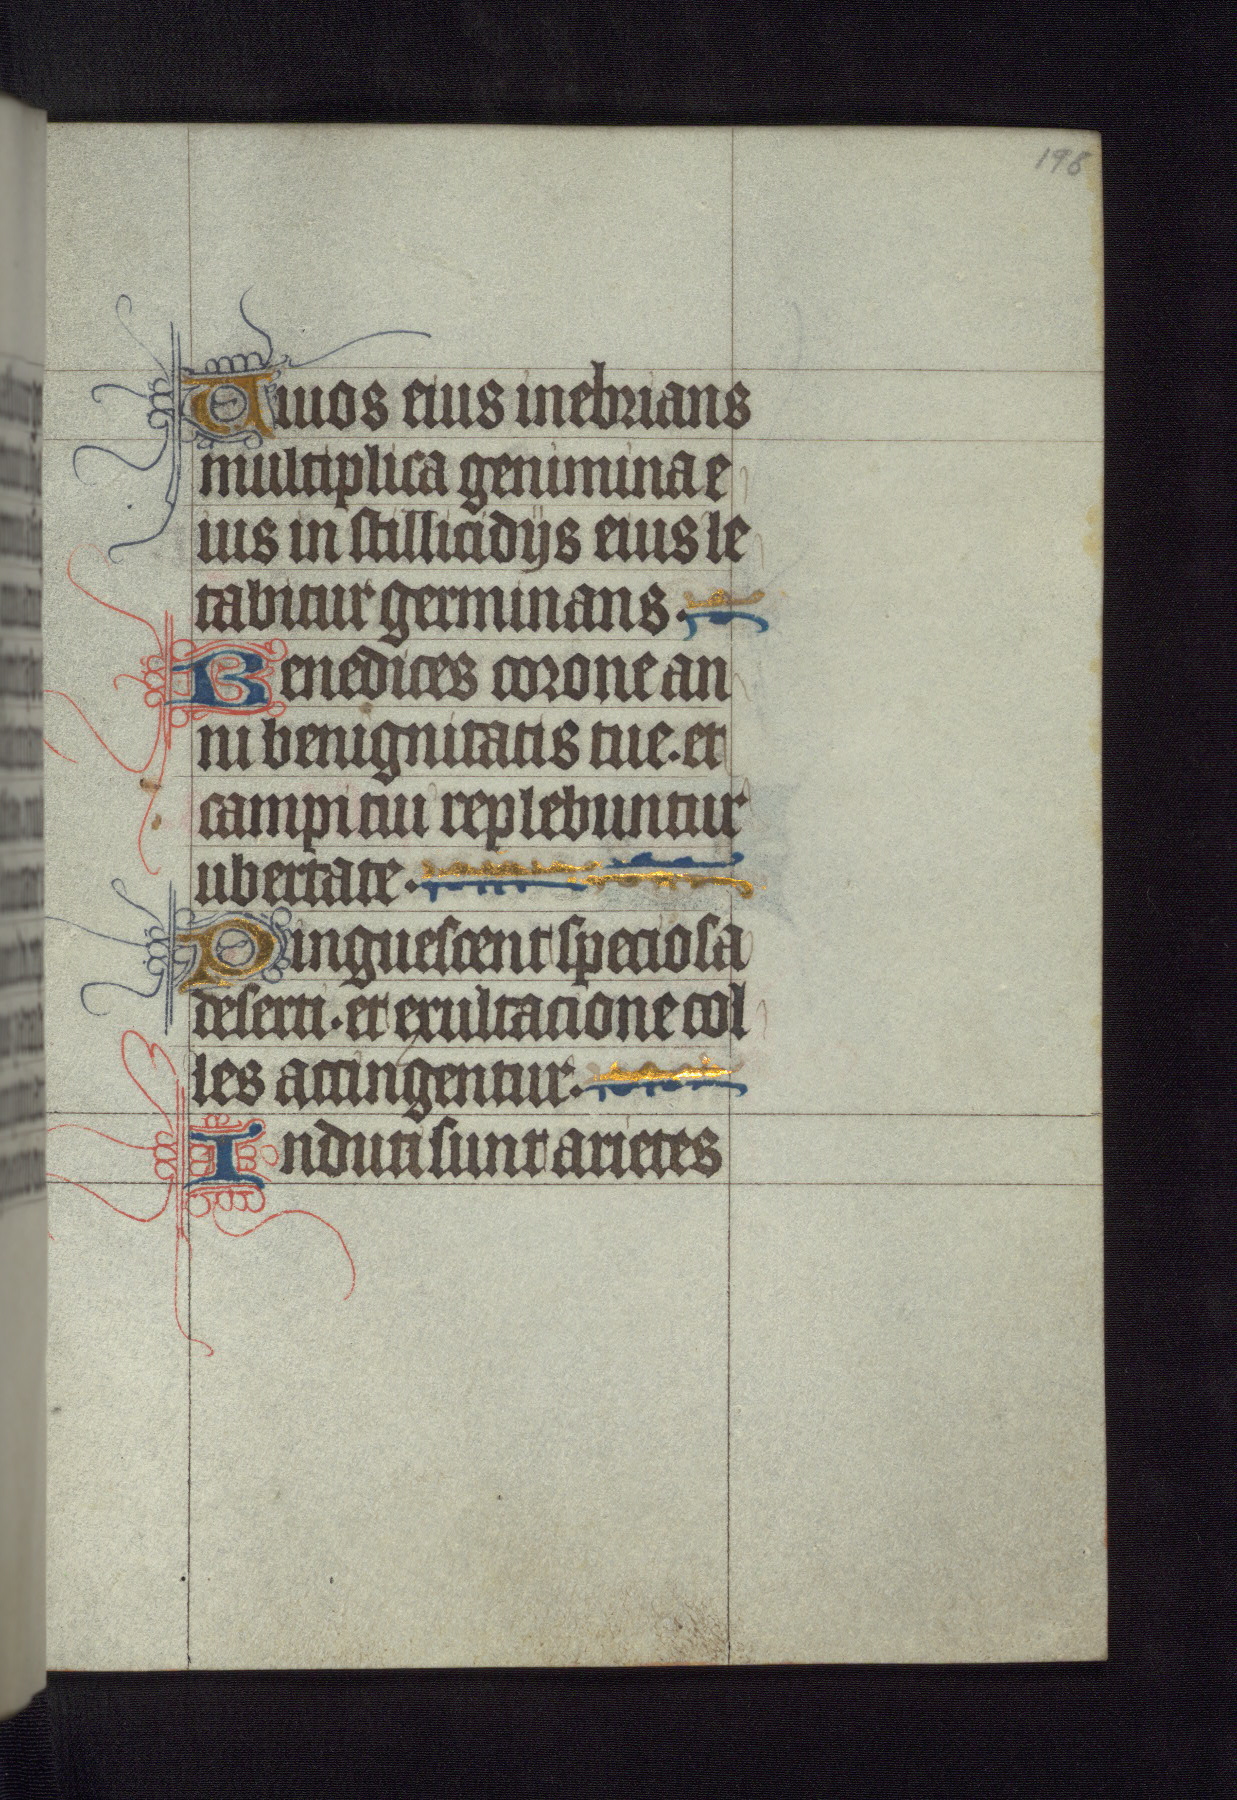 198
Riuos eius inebrians
multiplica genimina e
ius in stillicidijs eius le
tabitur germinans.
Benedices corone an
ni benignitatis tue. et
campi tui replebuntur
ubertate.
Pinguescent speciosa
deserti. et exultacione col
les accingentur.
Induti sunt arietes